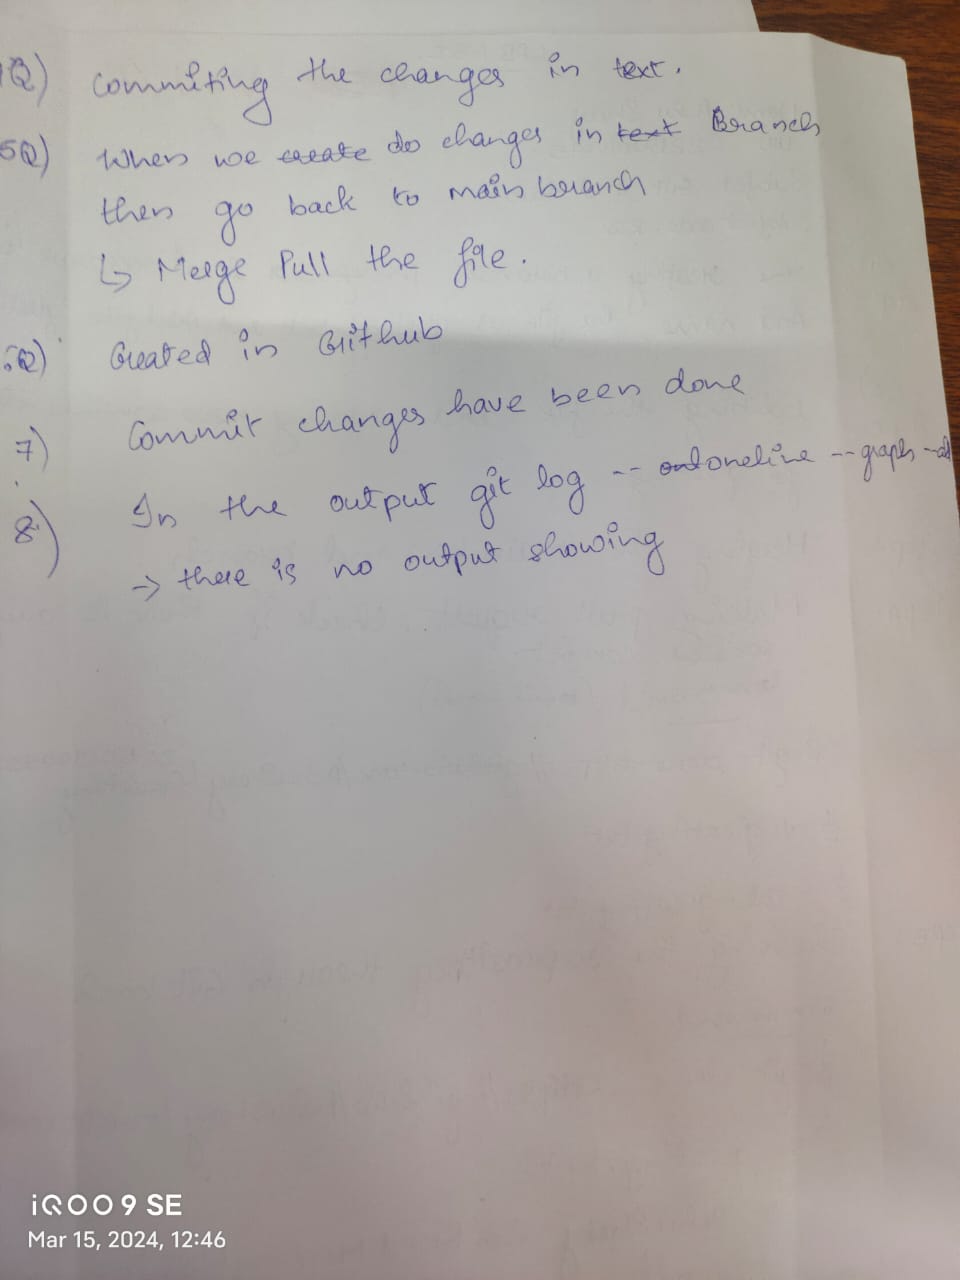 Q) Commiting the changes in text.
5Q) When we create do changes in text Branch
then go back to main branch
↳ Merge Pull the file.
Q) Created in Github
7) Commit changes have been done
8) In the output git log -- oneline --graph
→ there is no output showing
iQOO 9 SE
Mar 15, 2024, 12:46